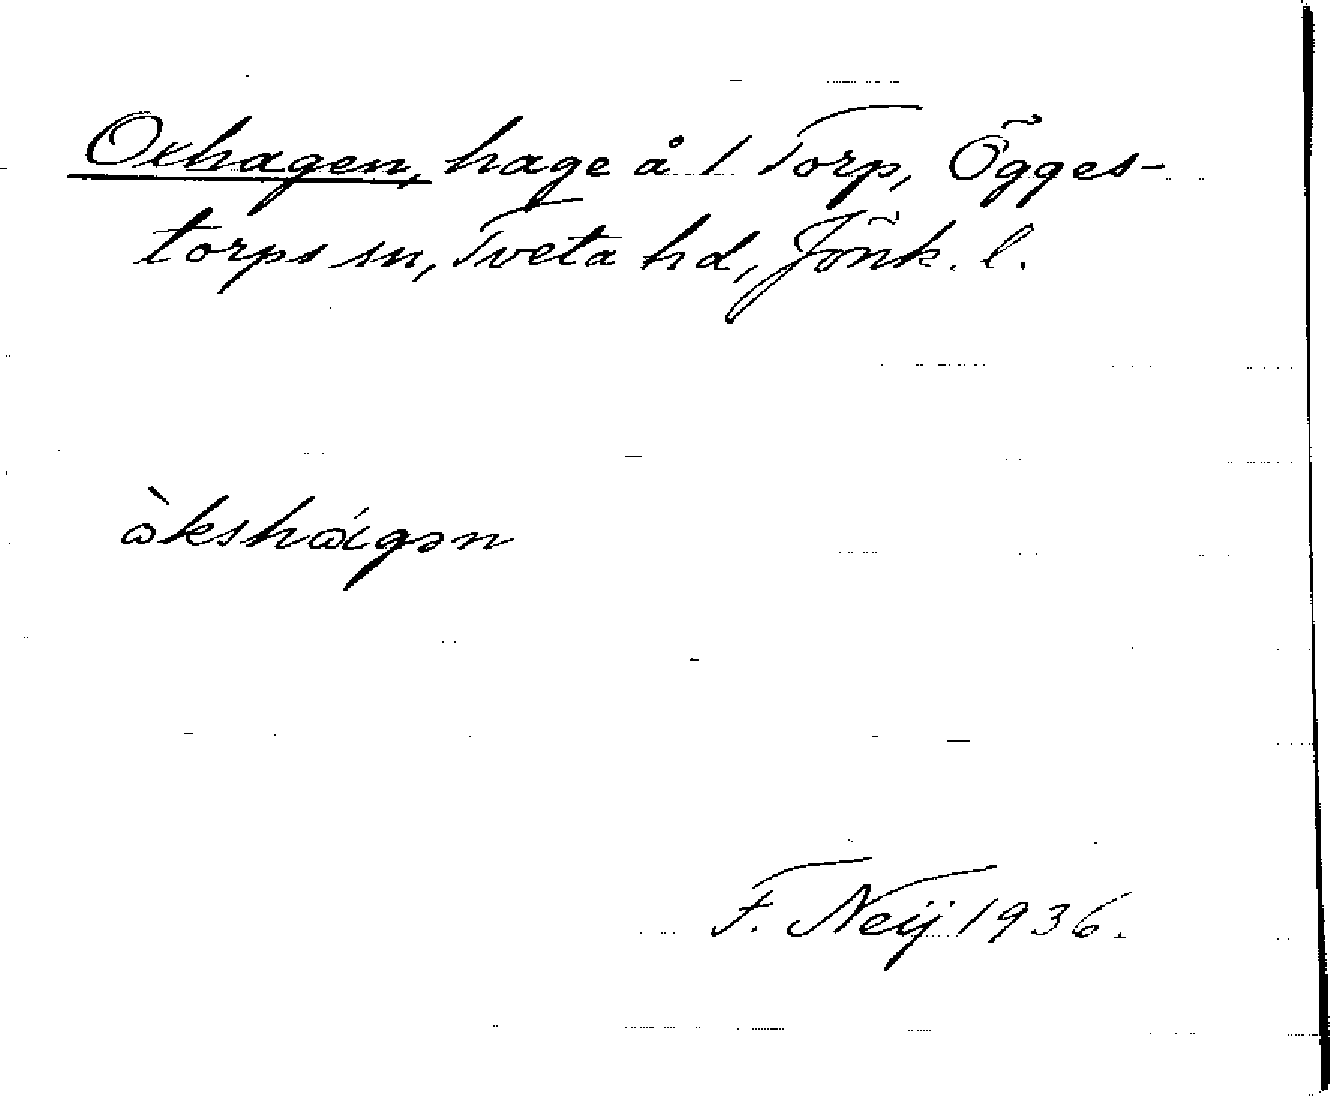 Oxhagen, hage å 1 Torp, Ögges-
torps sn, Tveta hd, Jönk. l.
ὼkshάgən
F. Neij 1936.